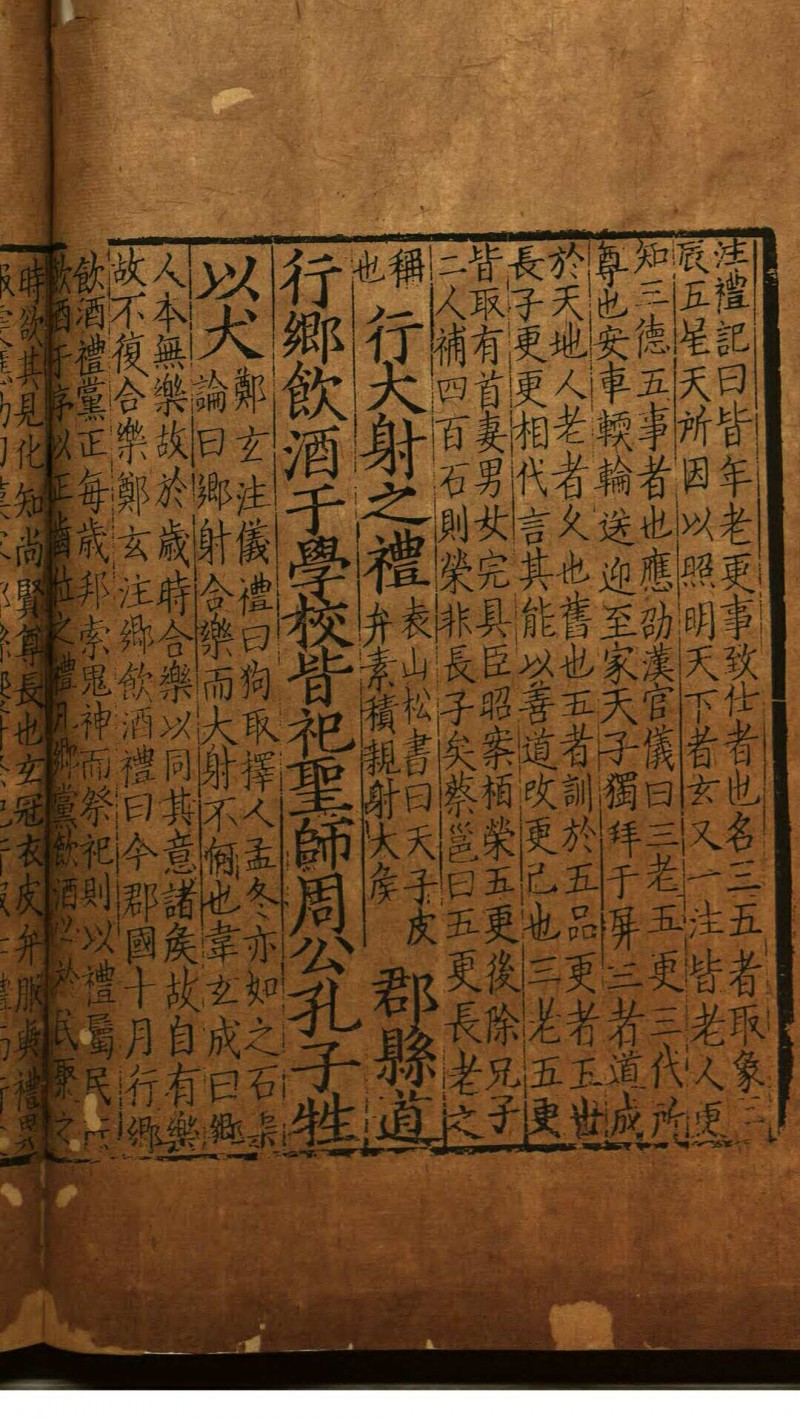 注禮記曰皆年老更事致仕者也名三五者取象三
辰五星天所因以照明天下者玄又一注皆老人更
知三德五事者也應劭漢官儀曰三老五更三代所
尊也安車輭輪送迎至家天子獨拜于屏三者道成
於天地人老者久也舊也五者訓於五品更者五世
長子更更相代言其能以善道改更己也三老五更
皆取有首妻男女完具臣昭案桓榮五更後除兄子
二人補四百石則榮非長子矣蔡邕曰五更長老之
稱
也
行大射之禮
袁山松書曰天子皮
弁素積親射大矦
郡縣道
行鄉飲酒于學校皆祀聖師周公孔子牲
以犬
鄭玄注儀禮曰狗取擇人孟冬亦如之石渠
論曰鄉射合樂而大射不何也韋玄成曰鄉
人本無樂故於歲時合樂以同其意諸矦故自有樂
故不復合樂鄭玄注鄉飲酒禮曰今郡國十月行鄉
飲酒禮黨正每歲邦索鬼神而祭祀則以禮屬民而
飲酒于序以正齒位之禮凡鄉黨飲酒必於民聚之
時欲其見化知尚賢尊長也玄冠衣皮弁服與禮異